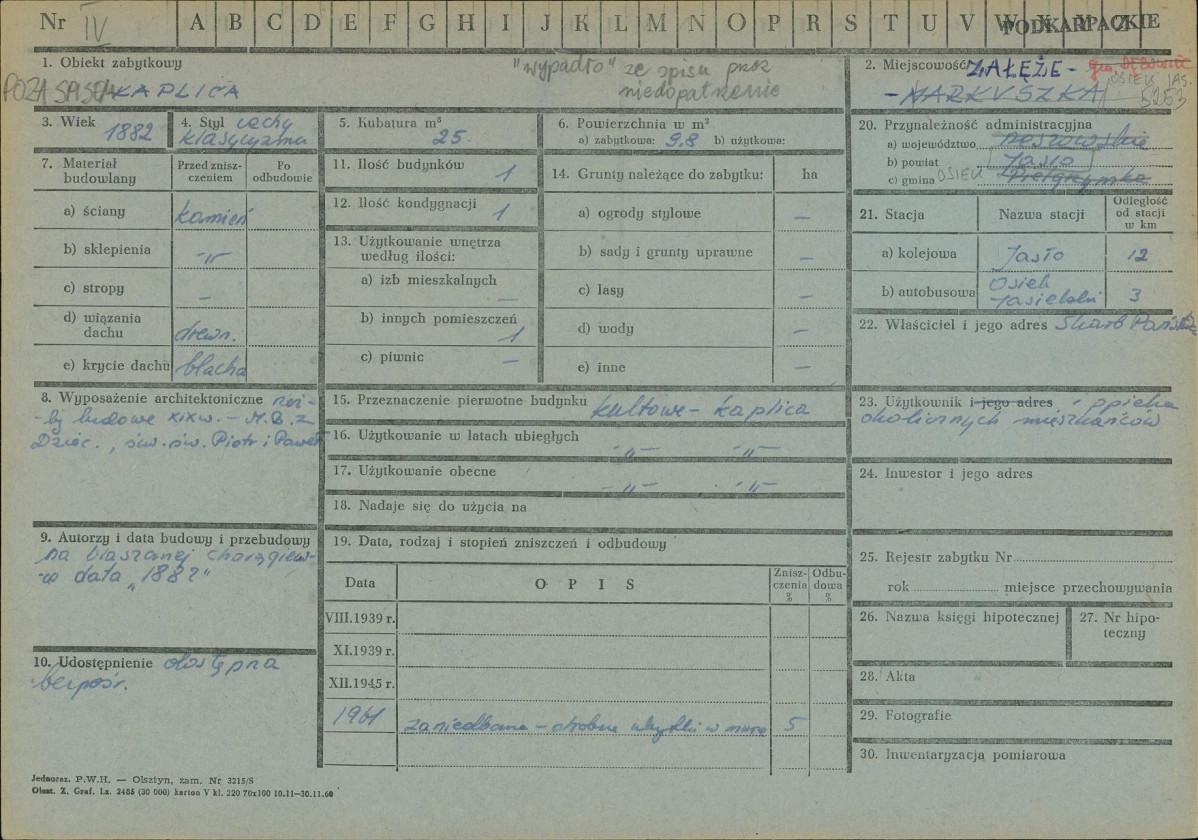 Nr IV A B C D E F G H I J K L M N O P R S T U V W X Y Z PODKARPACKIE
1. Obiekt zabytkowy
"wypadło" ze spisu przez
niedopatrzenie
POZA SPISEM KAPLICA
2. Miejscowość ZAŁĘŻE - gm. Dębowiec
OSIEK JAS.
- MARKUSZKA 5253
3. Wiek 1882
4. Styl cechy
klasycyzmu
5. Kubatura m³
25.
6. Powierzchnia w m²
a) zabytkowa: 9,8 b) użytkowa:
7. Materiał
budowlany
Przed znisz-
czeniem
Po
odbudowie
a) ściany kamień
b) sklepienia -"-
c) stropy -
d) wiązania
dachu drewn.
e) krycie dachu blacha
11. Ilość budynków 1
12. Ilość kondygnacji 1
13. Użytkowanie wnętrza
według ilości:
a) izb mieszkalnych -
b) innych pomieszczeń 1
c) piwnic -
14. Grunty należące do zabytku: ha
a) ogrody stylowe -
b) sady i grunty uprawne -
c) lasy -
d) wody -
e) inne -
20. Przynależność administracyjna
a) województwo rzeszowskie
b) powiat Jasło
c) gmina OSIEK Pielgrzymka
21. Stacja Nazwa stacji Odległość
od stacji
w km
a) kolejowa Jasło 12
b) autobusowa Osiek
Jasielski 3
22. Właściciel i jego adres Skarb Państwa
8. Wyposażenie architektoniczne rzeź-
-by ludowe XIX w. - M.B. z
Dziec., św. św. Piotr i Paweł
15. Przeznaczenie pierwotne budynku kultowe - kaplica
16. Użytkowanie w latach ubiegłych -"- -"-
17. Użytkowanie obecne -"- -"-
18. Nadaje się do użycia na
23. Użytkownik i jego adres i opieka
okolicznych mieszkańców
24. Inwestor i jego adres
9. Autorzy i data budowy i przebudowy
na blaszanej chorągiew-
-ce data "1882"
10. Udostępnienie dostępna
bezpośr.
19. Data, rodzaj i stopień zniszczeń i odbudowy
Data OPIS Znisz-
czenia
% Odbu-
dowa
%
VIII.1939 r.
XI.1939 r.
XII.1945 r.
1961 zaniedbana - drobne ubytki w murze 5
25. Rejestr zabytku Nr
rok miejsce przechowywania
26. Nazwa księgi hipotecznej
27. Nr hipo-
teczny
28. Akta
29. Fotografie
30. Inwentaryzacja pomiarowa
Jednoraz. P.W.H. — Olsztyn, zam. Nr 3215/S
Olszt. Z. Graf. Lz. 2485 (30 000) karton V kl. 220 70x100 10.11—30.11.60